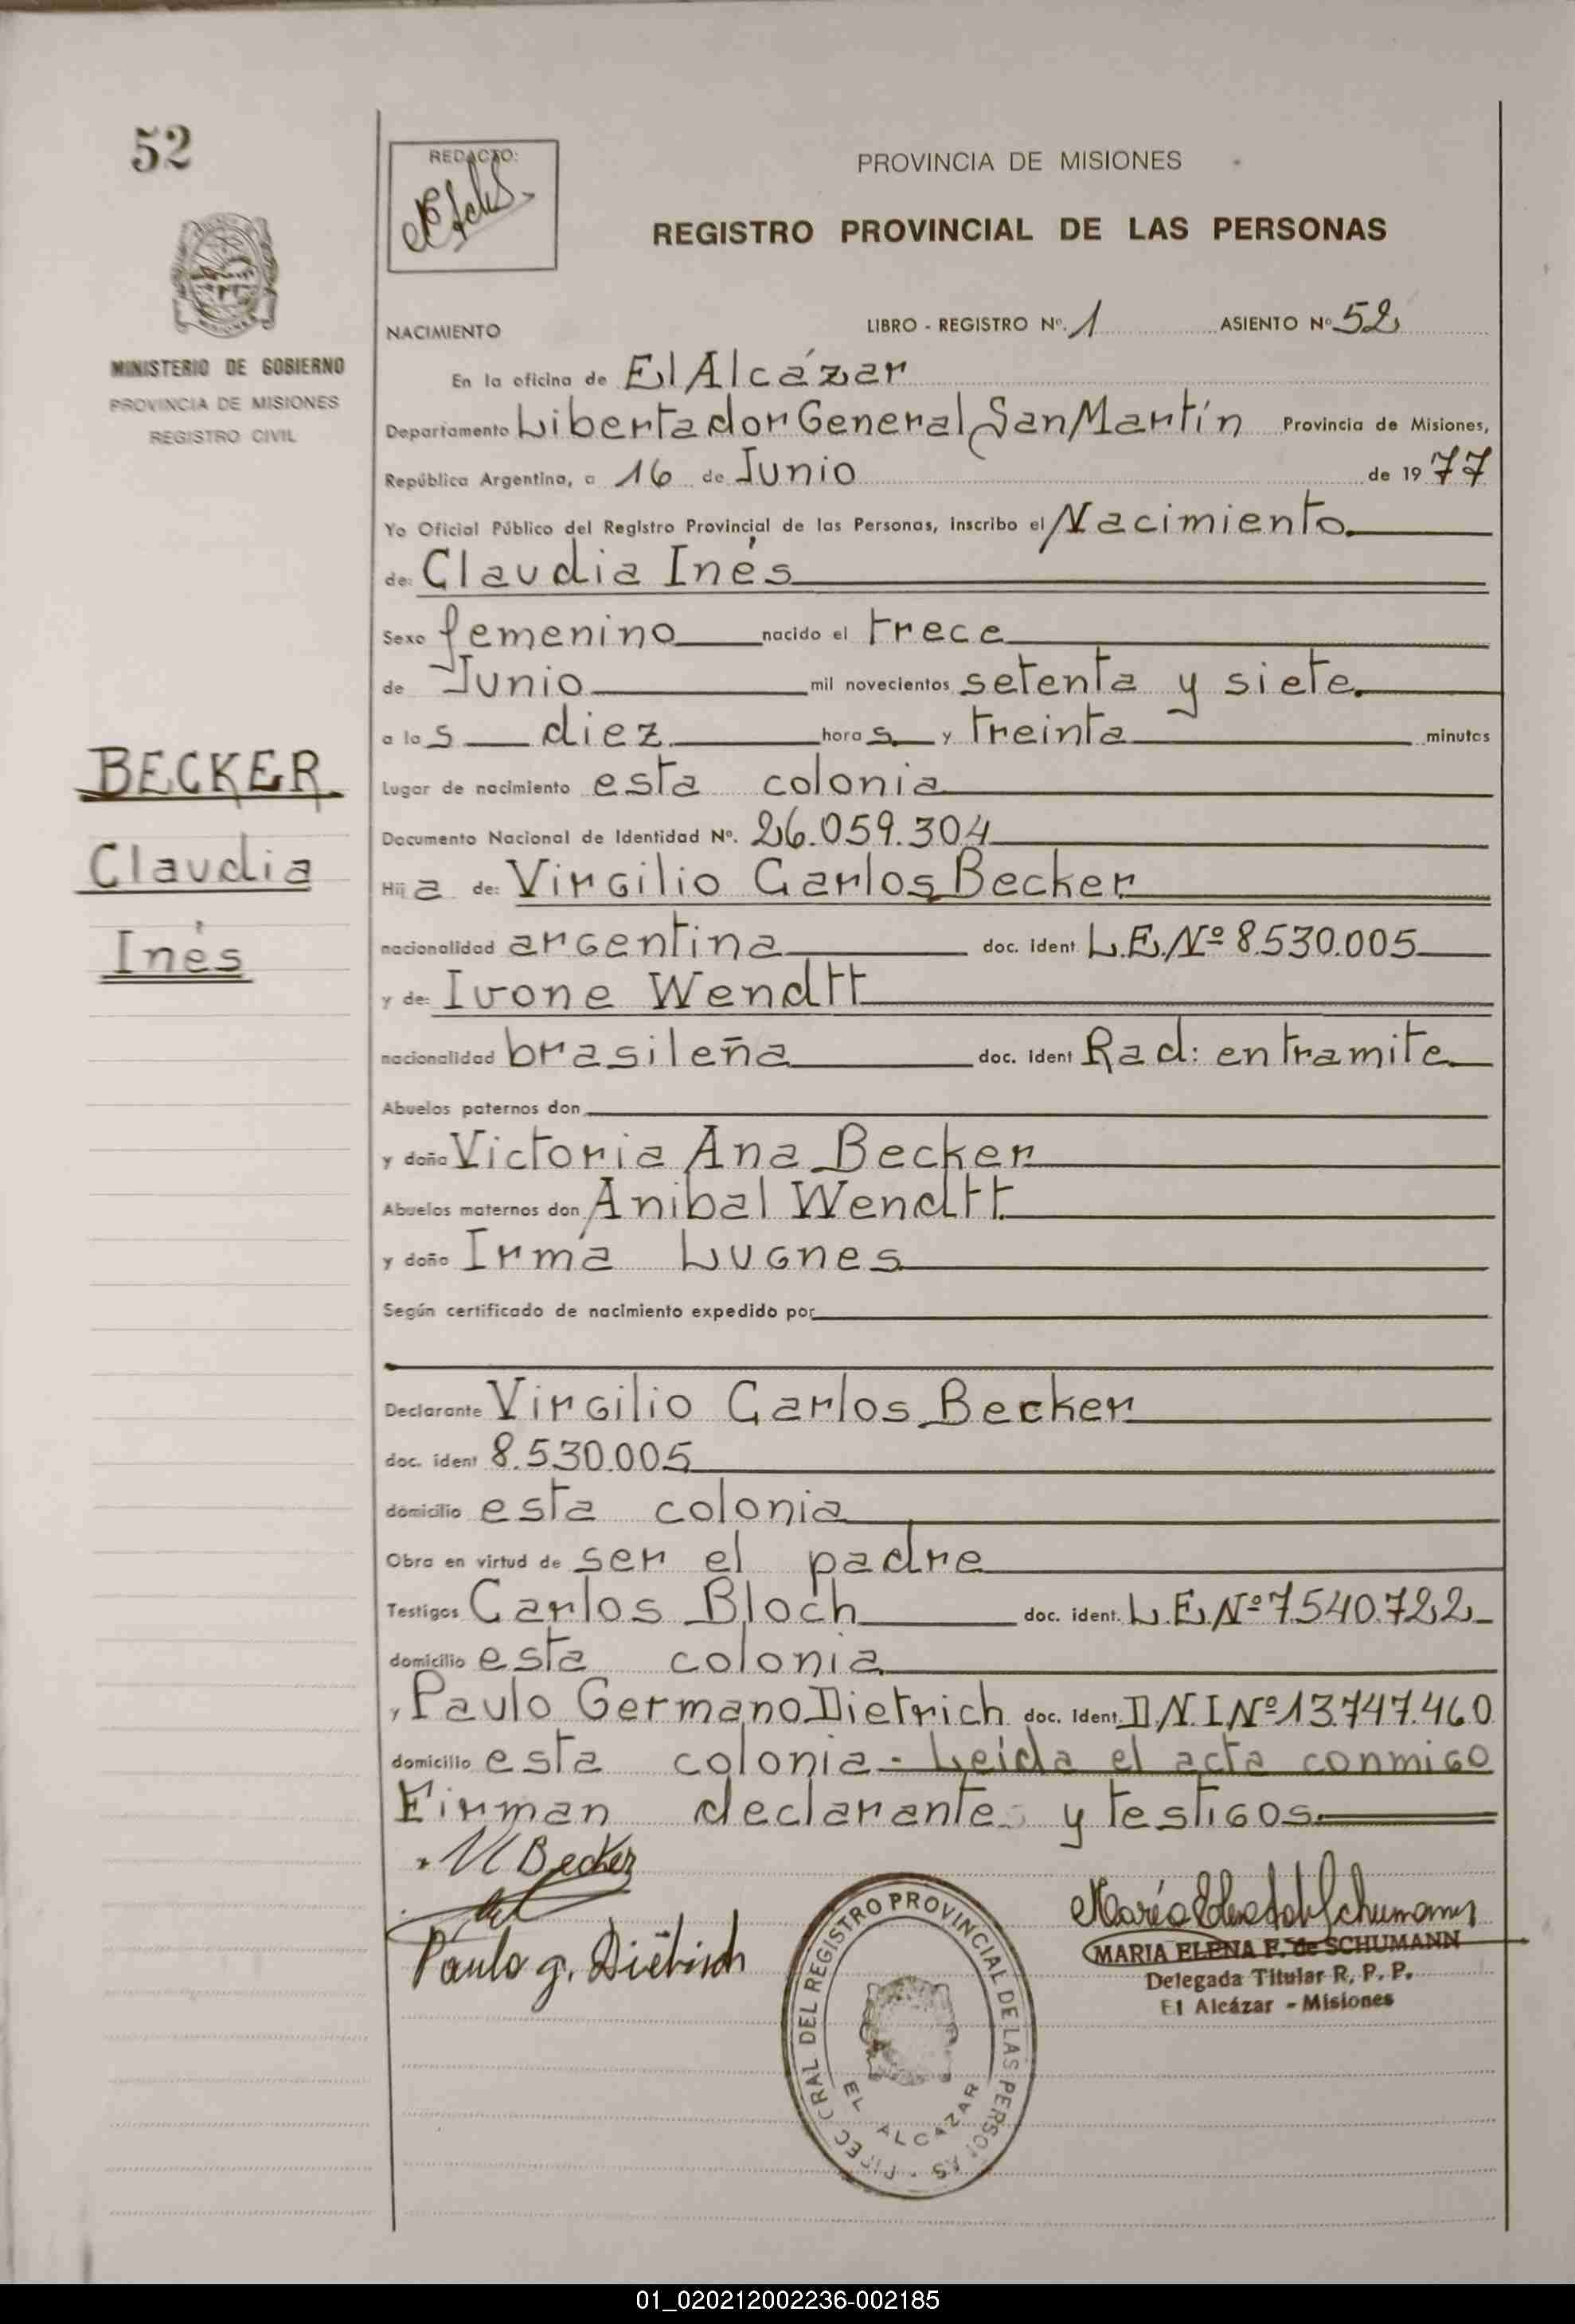 52
MINISTERIO DE GOBIERNO
PROVINCIA DE MISIONES
REGISTRO CIVIL
BECKER
Claudia
Inés
REDACTO:
PROVINCIA DE MISIONES
REGISTRO PROVINCIAL DE LAS PERSONAS
NACIMIENTO LIBRO - REGISTRO Nº. 1 ASIENTO Nº 52
En la oficina de El Alcázar
Departamento Libertador General San Martín Provincia de Misiones,
República Argentina, a 16 de Junio de 1977
Yo Oficial Público del Registro Provincial de las Personas, inscribo el Nacimiento
de: Claudia Inés
Sexo femenino nacido el trece
de Junio mil novecientos setenta y siete
a las diez horas y treinta minutos
Lugar de nacimiento esta colonia
Documento Nacional de Identidad Nº. 26.059.304
Hija de: Virgilio Carlos Becker
nacionalidad argentina doc. ident L.E.Nº 8.530.005
y de: Ivone Wendtt
nacionalidad brasileña doc. ident Rad: en tramite
Abuelos paternos don
y doña Victoria Ana Becker
Abuelos maternos don Anibal Wendtt
y doña Irma Lugnes
Según certificado de nacimiento expedido por
Declarante Virgilio Carlos Becker
doc. ident 8.530.005
domicilio esta colonia
Obra en virtud de ser el padre
Testigos Carlos Bloch doc. ident. L.E.Nº 7.540.722
domicilio esta colonia
y Paulo Germano Dietrich doc. ident. D.N.I Nº 13.747.460
domicilio esta colonia - Leída el acta conmigo
Firman declarante y testigos
V C Becker
Paulo g. Dietrich
MARIA ELENA F. de SCHUMANN
Delegada Titular R. P. P.
El Alcázar - Misiones
DIREC GRAL DEL REGISTRO PROVINCIAL DE LAS PERSONAS
EL ALCAZAR
01_020212002236-002185